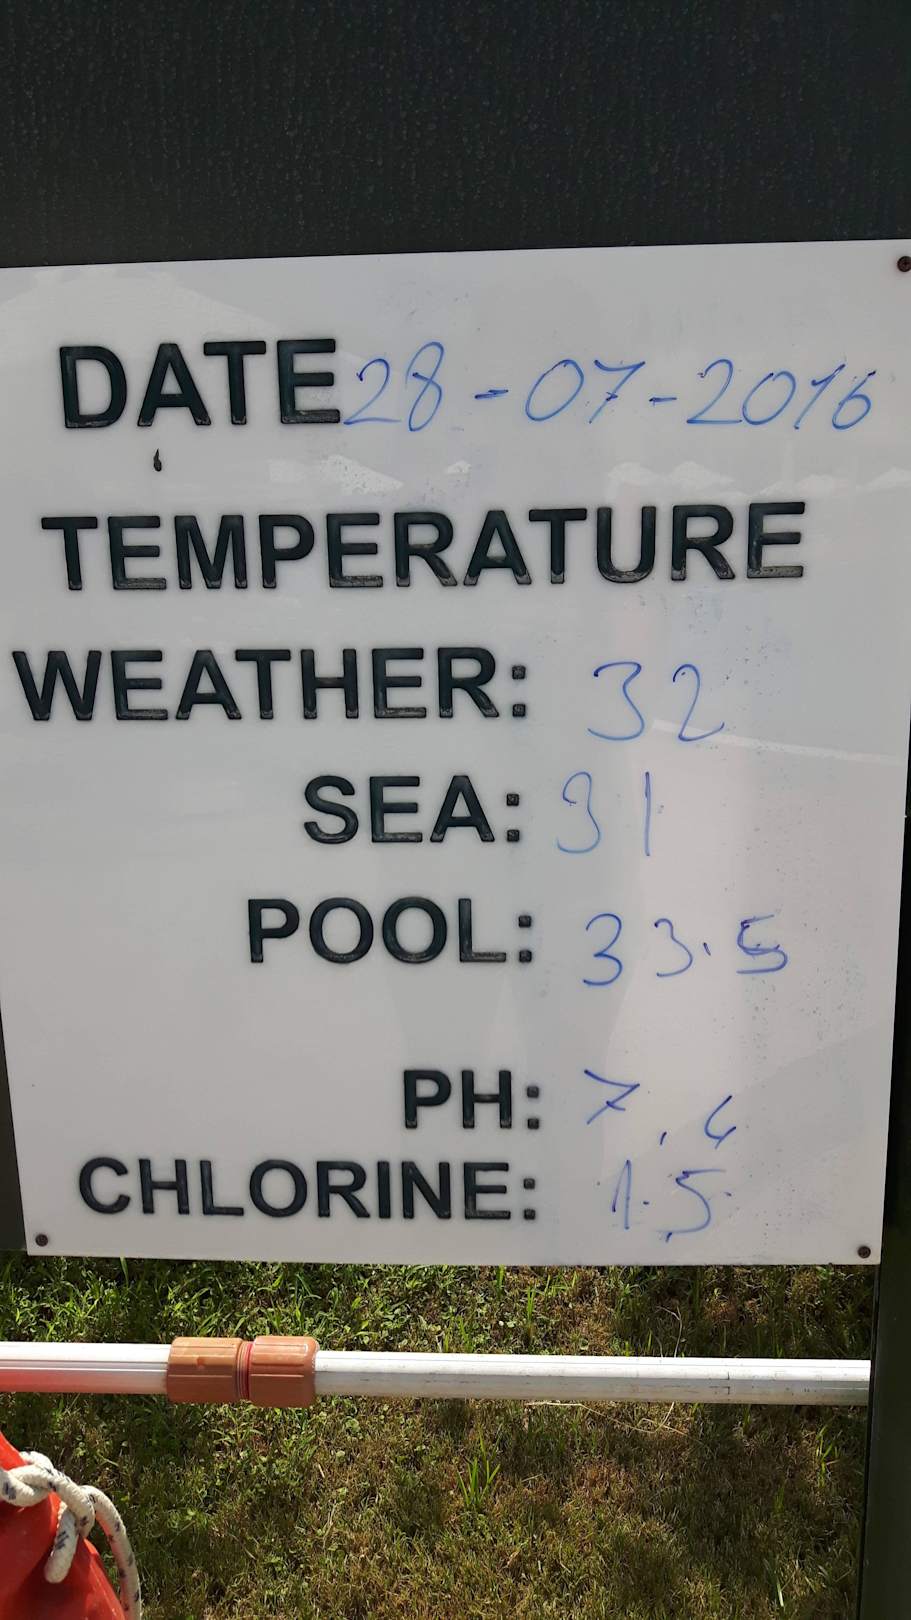 DATE 28-07-2016
TEMPERATURE
WEATHER: 32
SEA: 31
POOL: 33.5
PH: 7.4
CHLORINE: 1.5